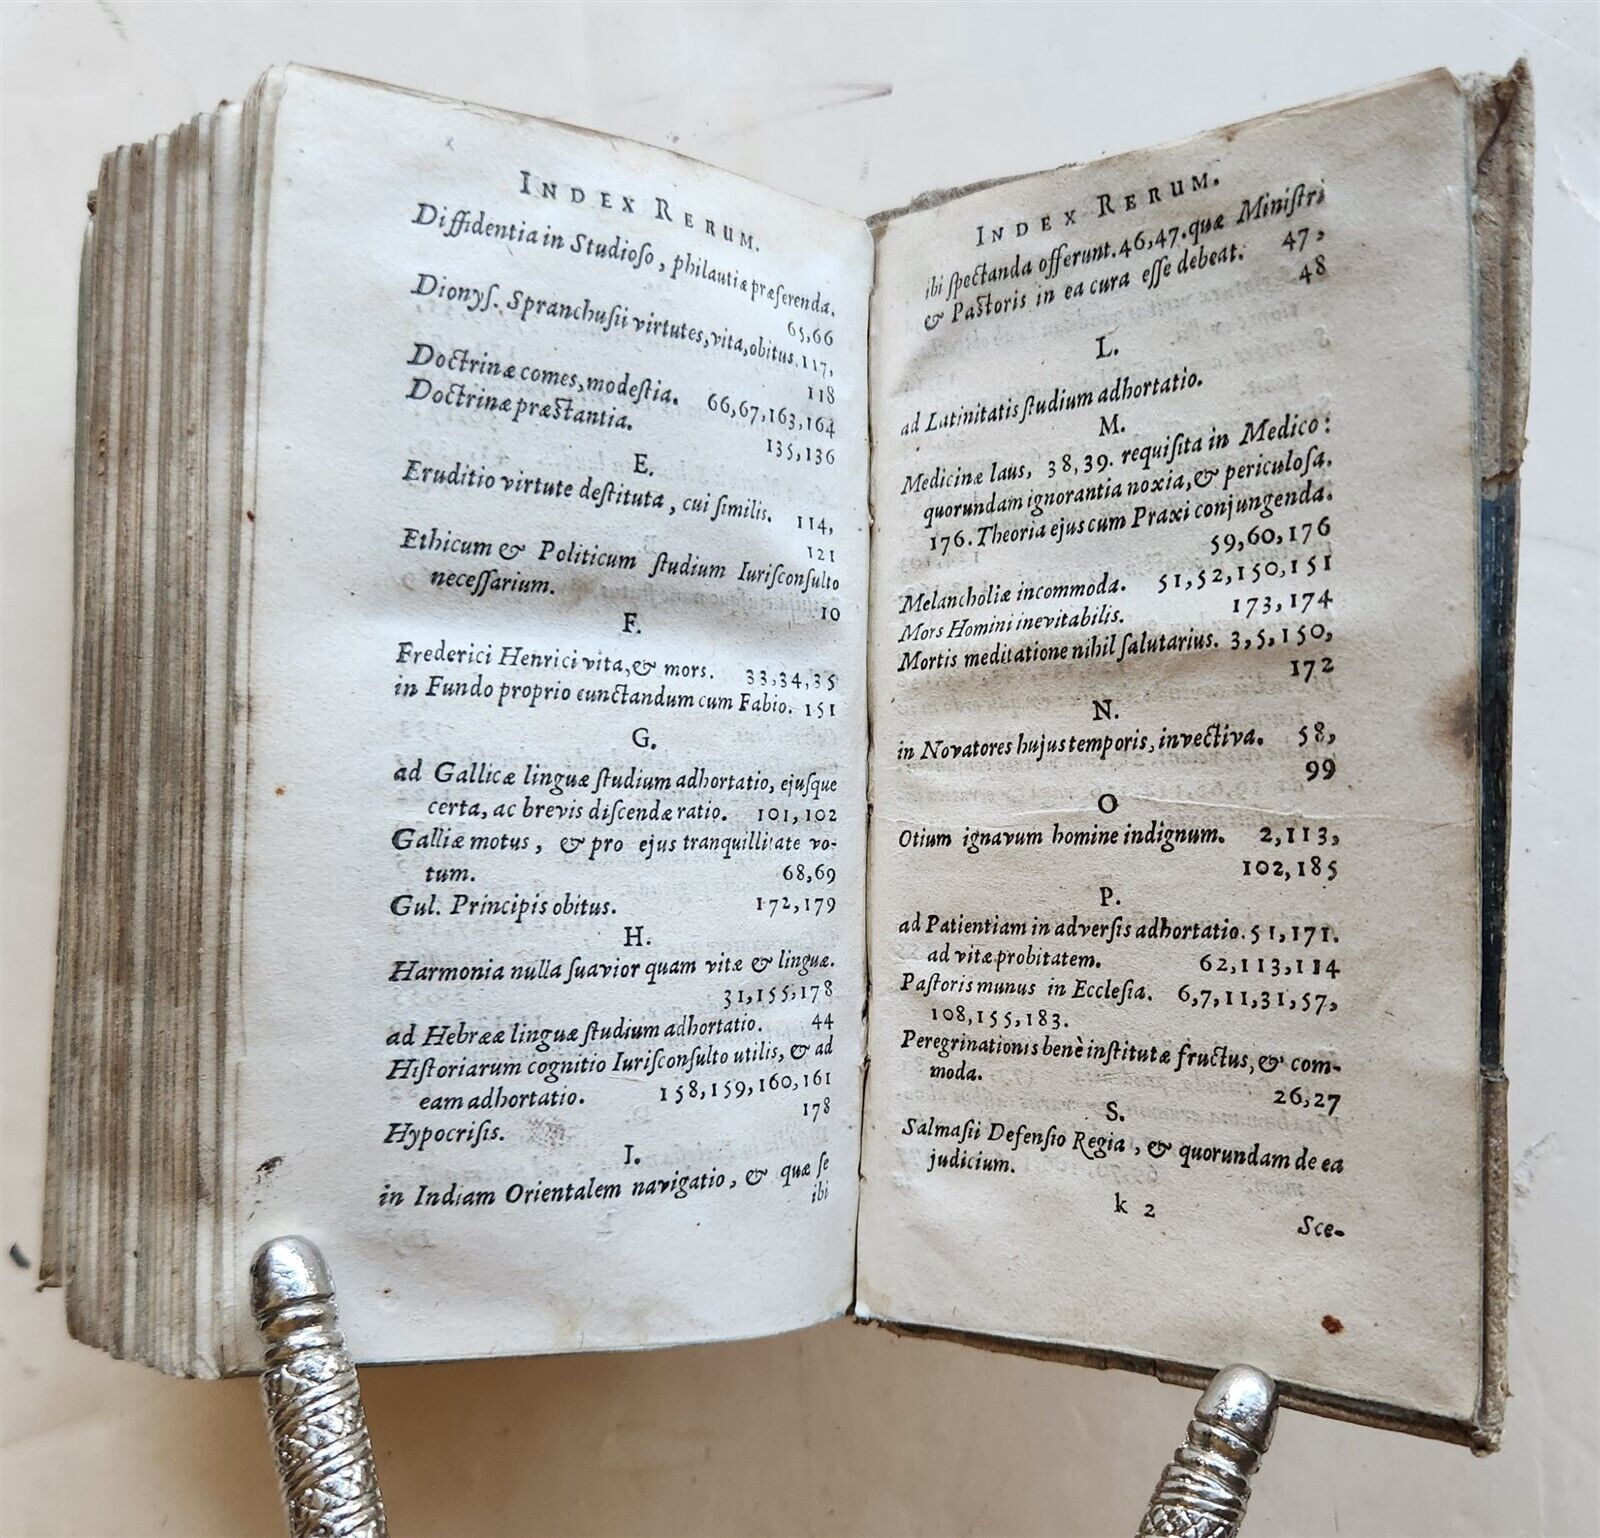 INDEX RERUM.
Diffidentia in Studioſo, philautiæ præferenda.
65,66
Dionyſ. Spranchuſii virtutes, vita, obitus. 117,
118
Doctrinæ comes, modeſtia. 66,67,163,164
Doctrinæ præſtantia. 135,136
E.
Eruditio virtute deſtituta, cui ſimilis. 114,
121
Ethicum & Politicum ſtudium Iuriſconſulto
neceſſarium. 10
F.
Frederici Henrici vita, & mors. 33,34,35
in Fundo proprio cunctandum cum Fabio. 151
G.
ad Gallicæ linguæ ſtudium adhortatio, ejuſque
certa, ac brevis diſcendæ ratio. 101,102
Galliæ motus, & pro ejus tranquillitate vo-
tum. 68,69
Gul. Principis obitus. 172,179
H.
Harmonia nulla ſuavior quam vitæ & linguæ.
31,155,178
ad Hebrææ linguæ ſtudium adhortatio. 44
Hiſtoriarum cognitio Iuriſconſulto utilis, & ad
eam adhortatio. 158,159,160,161
Hypocriſis. 178
I.
in Indiam Orientalem navigatio, & quæ ſe
ibi
INDEX RERUM.
ibi ſpectanda offerunt. 46,47. quæ Miniſtri
& Paſtoris in ea cura eſſe debeat. 47,
48
L.
ad Latinitatis ſtudium adhortatio.
M.
Medicinæ laus, 38,39. requiſita in Medico:
quorundam ignorantia noxia, & periculoſa.
176. Theoria ejus cum Praxi conjungenda.
59,60,176
Melancholiæ incommoda. 51,52,150,151
Mors Homini inevitabilis. 173,174
Mortis meditatione nihil ſalutarius. 3,5,150,
172
N.
in Novatores hujus temporis, invectiva. 58,
99
O
Otium ignavum homine indignum. 2,113,
102,185
P.
ad Patientiam in adverſis adhortatio. 51,171.
ad vitæ probitatem. 62,113,114
Paſtoris munus in Eccleſia. 6,7,11,31,57,
108,155,183.
Peregrinationis benè inſtitutæ fructus, & com-
moda. 26,27
S.
Salmaſii Defenſio Regia, & quorundam de ea
judicium.
k 2
Sce-